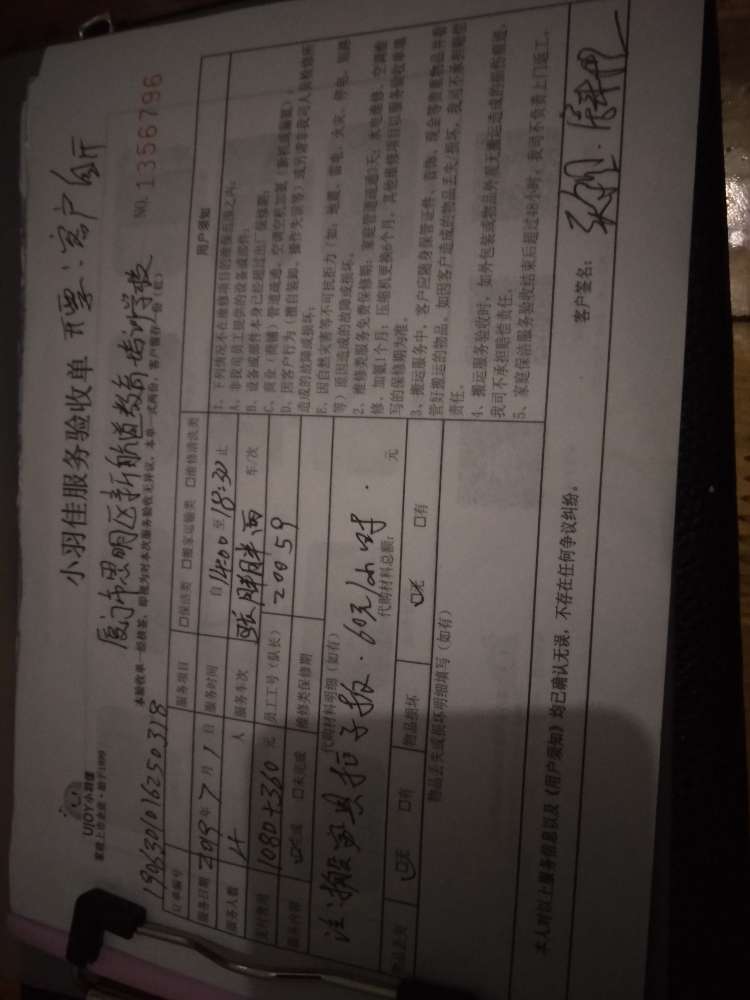 小羽佳服务验收单 开票:客户公斤
厦门市思明区新航道教育培训学校
UJOY小羽佳
家政上市企业·始于1999
本验收单一经核签,即视为对本次服务验收无异议,本单一式两份,客户留存一份(红)
NO. 1356796
订单编号 1906301016250318
服务项目 □保洁类 □搬家运输类 □维修清洗类
服务日期 2019年7月1日 服务时间 自14:00至18:30止
服务人数 4 人 服务车次 车/次
支付费用 1080+360 元 员工工号(队长) 20059
□未完成 维修类保修期
代购材料明细(如有)
注:搬家具拍子报·60元/小时·
代购材料总额: 元
物品丢失 ☑无 □有 物品损坏 ☑无 □有
物品丢失或损坏明细填写(如有)
用户须知
1、下列情况不在维修项目的维保范围之内:
A、非我司员工提供的设备或部件;
B、设备或部件本身已经超过出厂保修期;
C、商业(商铺)管道疏通、空调空机加氨(新机或漏氨);
D、因客户行为(擅自装卸、操作失误等)或另请非我司人员检修所
造成的故障或损坏;
E、因自然灾害等不可抗拒力(如:地震、雷电、火灾、停电、短路
等)原因造成的故障或损坏。
2、维修类服务免费保修期:家庭管道疏通3天;水电维修、空调维
修、加氨1个月;压缩机更换6个月,其他维修项目以服务验收单填
写的保修期为准。
3、搬运服务中,客户应随身保管证件、首饰、现金等贵重物品并看
管好搬运的物品,如因客户造成的物品丢失/损坏,我司不承担赔偿
责任。
4、搬运服务验收时,如外包装或物品外观无搬运造成的损伤痕迹,
我司不承担赔偿责任。
5、家庭保洁服务验收结束后超过48小时,我司不负责上门返工。
本人对以上服务信息以及《用户须知》均已确认无误,不存在任何争议纠纷。
客户签名: